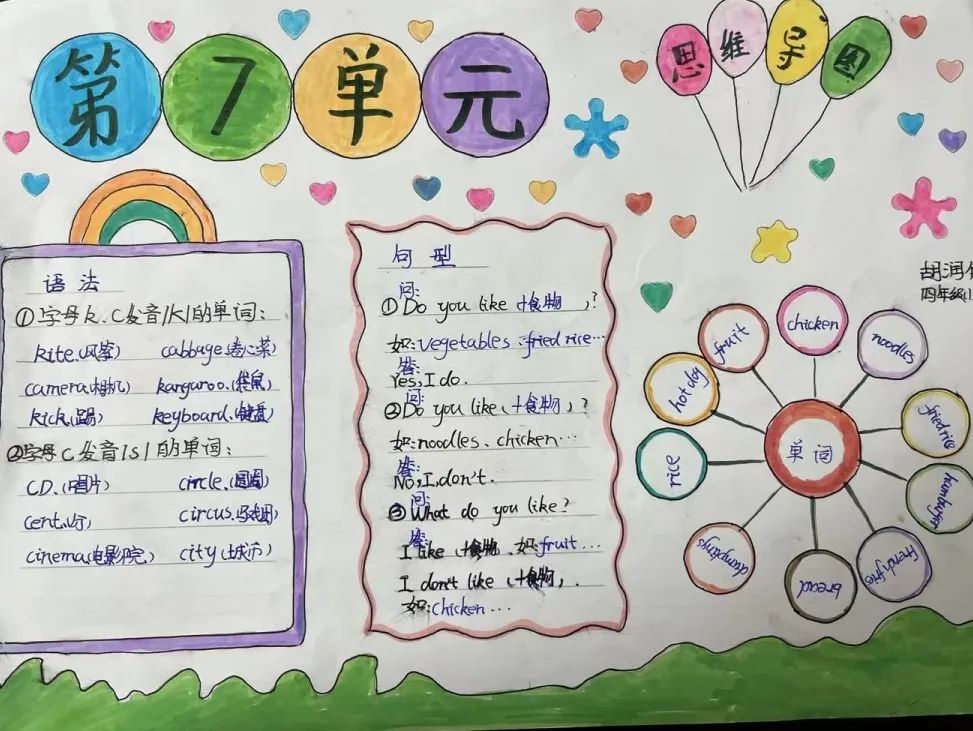 第7单元
思维导图
语法
①字母k、C发音/k/的单词:
kite.(风筝) cabbage.(卷心菜)
camera.(相机) kangaroo.(袋鼠)
kick.(踢) keyboard.(键盘)
②字母C发音/s/的单词:
CD.(唱片) circle.(圆圈)
cent. circus.(马戏团)
cinema(电影院) city(城市)
句型
问:
①Do you like +食物 ?
如:vegetables、fried rice…
答:
Yes, I do.
问:
②Do you like(+食物)?
如:noodles、chicken…
答:
No, I don't.
问:
③What do you like?
答:
I like (+食物. 如:fruit…
I don't like (+食物).
如:chicken…
胡润
四年级(1
单词
chicken
noodles
fried rice
hamburger
French fries
bread
dumplings
rice
hot dog
fruit